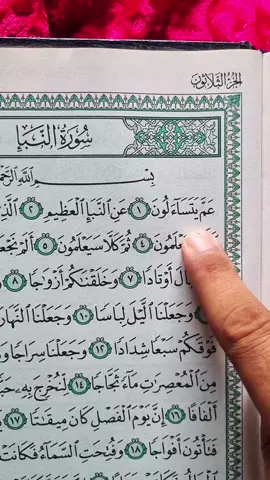 الجزء الثلاثون
سُورَةُ النَّبَإِ
بِسْمِ ٱللَّهِ ٱلرَّحْمَ
عَمَّ يَتَسَآءَلُونَ ١ عَنِ ٱلنَّبَإِ ٱلْعَظِيمِ ٢ ٱلَّذِ
يَعْلَمُونَ ٤ ثُمَّ كَلَّا سَيَعْلَمُونَ ٥ أَلَمْ نَجْعَ
بَالَ أَوْتَادًا ٧ وَخَلَقْنَٰكُمْ أَزْوَٰجًا ٨
وَجَعَلْنَا ٱلَّيْلَ لِبَاسًا ١٠ وَجَعَلْنَا ٱلنَّهَارَ
فَوْقَكُمْ سَبْعًا شِدَادًا ١٢ وَجَعَلْنَا سِرَاجًا وَ
مِنَ ٱلْمُعْصِرَٰتِ مَآءً ثَجَّاجًا ١٤ لِّنُخْرِجَ بِهِۦ حَبًّ
أَلْفَافًا ١٦ إِنَّ يَوْمَ ٱلْفَصْلِ كَانَ مِيقَٰتًا ١٧
فَتَأْتُونَ أَفْوَاجًا ١٨ وَفُتِحَتِ ٱلسَّمَآءُ فَكَانَتْ